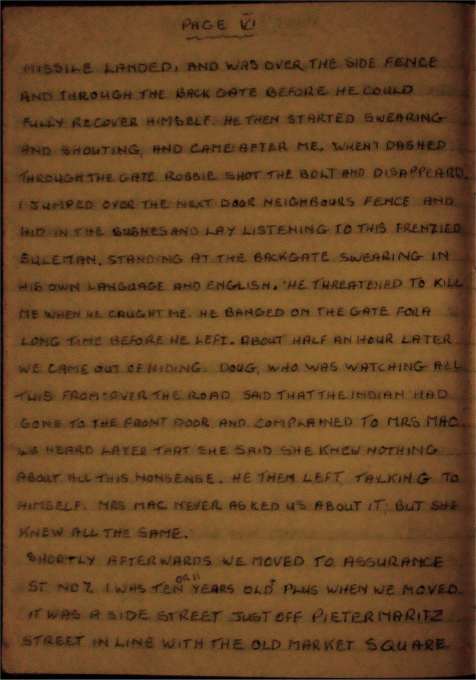 PAGE VI
MISSILE LANDED, AND WAS OVER THE SIDE FENCE
AND THROUGH THE BACK GATE BEFORE HE COULD
FULLY RECOVER HIMSELF. HE THEN STARTED SWEARING
AND SHOUTING, AND CAME AFTER ME. WHEN I DASHED
THROUGH THE GATE ROBBIE SHOT THE BOLT AND DISAPPEARD.
I JUMPED OVER THE NEXT DOOR NEIGHBOURS FENCE AND
HID IN THE BUSHES AND LAY LISTENING TO THIS FRENZIED
SULEMAN, STANDING AT THE BACKGATE SWEARING IN
HIS OWN LANGUAGE AND ENGLISH. HE THREATENED TO KILL
ME WHEN HE CAUGHT ME. HE BANGED ON THE GATE FOR A
LONG TIME BEFORE HE LEFT. ABOUT HALF AN HOUR LATER
WE CAME OUT OF HIDING. DOUG, WHO WAS WATCHING ALL
THIS FROM OVER THE ROAD SAID THAT THE INDIAN HAD
GONE TO THE FRONT DOOR AND COMPLAINED TO MRS MAC.
WE HEARD LATER THAT SHE SAID SHE KNEW NOTHING
ABOUT ALL THIS NONSENSE. HE THEN LEFT TALKING TO
HIMSELF. MRS MAC NEVER ASKED US ABOUT IT; BUT SHE
KNEW ALL THE SAME.
SHORTLY AFTERWARDS WE MOVED TO ASSURANCE
ST NO 7. I WAS TEN OR 11 YEARS OLD PLUS WHEN WE MOVED.
IT WAS A SIDE STREET JUST OFF PIETERMARITZ
STREET IN LINE WITH THE OLD MARKET SQUARE.